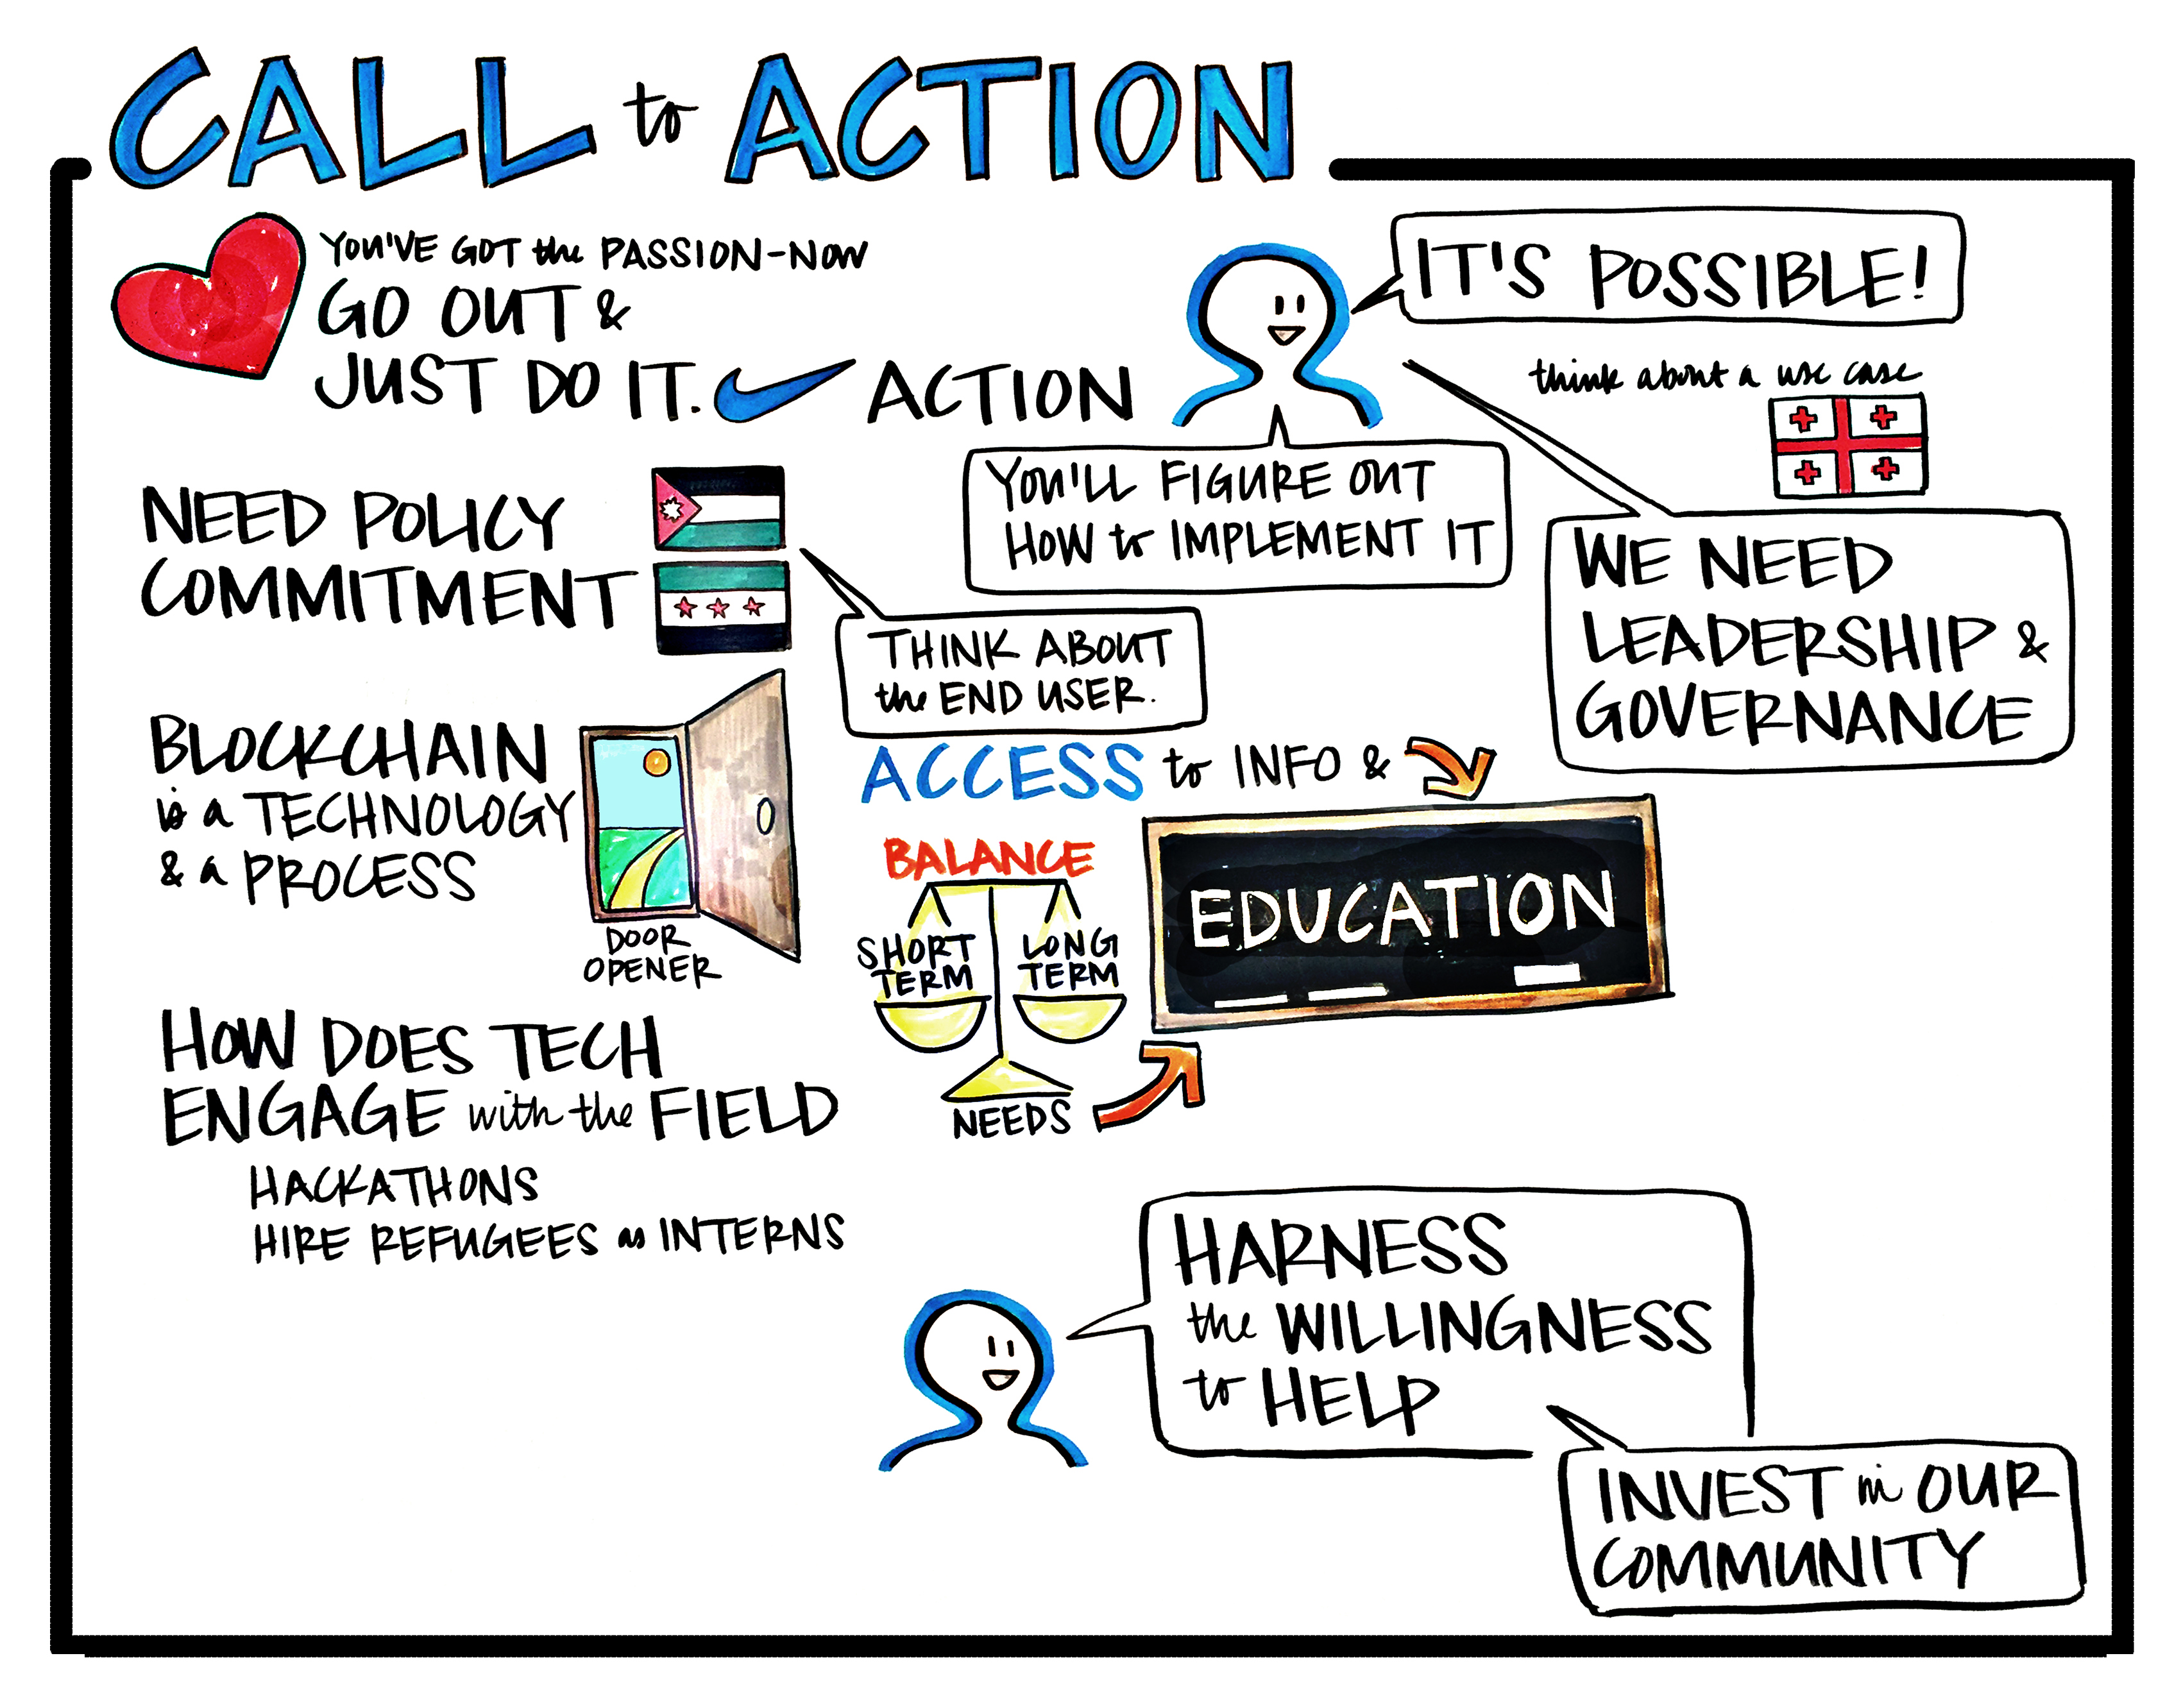 CALL to ACTION
YOU'VE GOT the PASSION-NOW
GO OUT &
JUST DO IT.
ACTION
IT'S POSSIBLE!
think about a use case
YOU'LL FIGURE OUT
HOW to IMPLEMENT IT
WE NEED
LEADERSHIP &
GOVERNANCE
NEED POLICY
COMMITMENT
THINK ABOUT
the END USER.
BLOCKCHAIN
is a TECHNOLOGY
& a PROCESS
DOOR
OPENER
ACCESS to INFO &
EDUCATION
BALANCE
SHORT
TERM
LONG
TERM
NEEDS
HOW DOES TECH
ENGAGE with the FIELD
HACKATHONS
HIRE REFUGEES as INTERNS
HARNESS
the WILLINGNESS
to HELP
INVEST in OUR
COMMUNITY